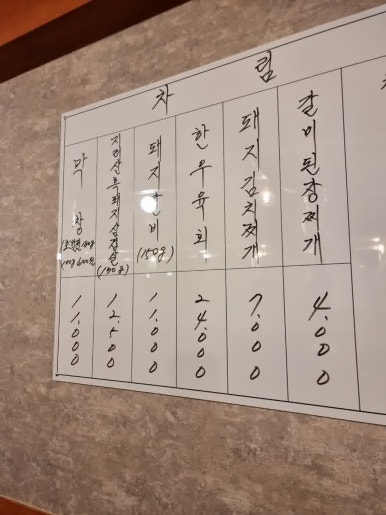 차림
막창
지리산흑돼지삼겹살
(150g)
돼지갈비
(150g)
한우육회
돼지김치찌개
갈비된장찌개
11,000
12,500
11,000
24,000
7,000
4,000